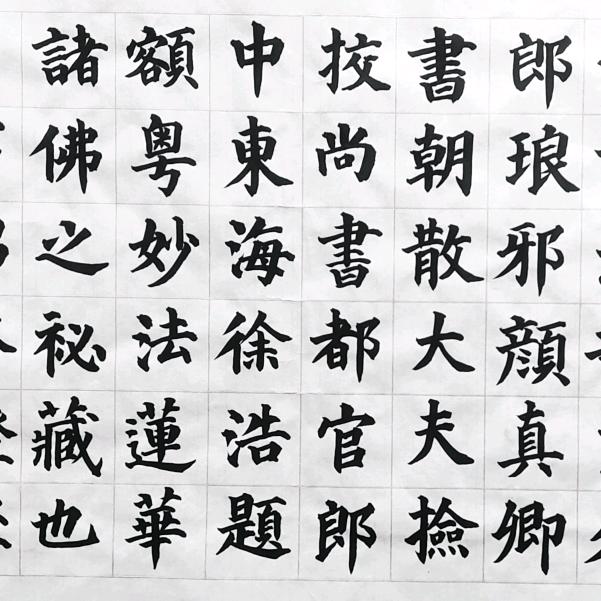 郎琅邪顔真卿
書朝散大夫撿
挍尚書都官郎
中東海徐浩題
額粤妙法蓮華
諸佛之祕藏也